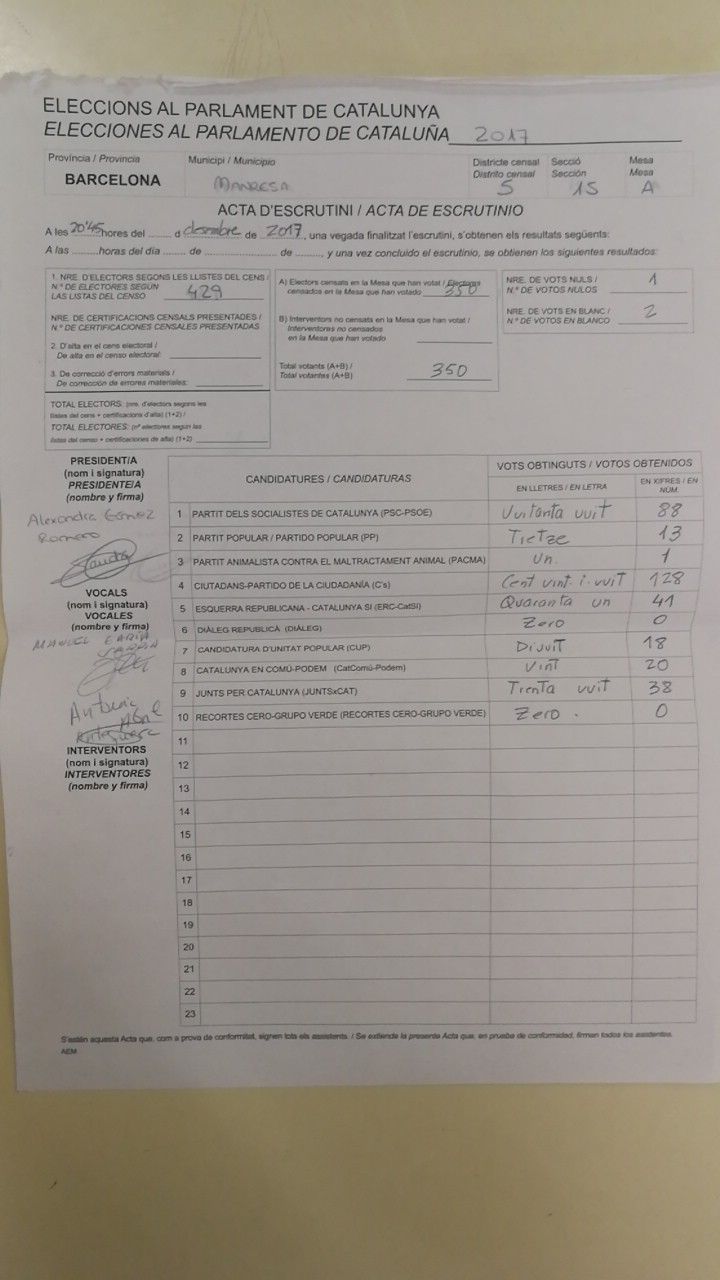 ELECCIONS AL PARLAMENT DE CATALUNYA
ELECCIONES AL PARLAMENTO DE CATALUÑA 2017
Província / Provincia Municipi / Municipio Districte censal Secció Mesa
Distrito censal Sección Mesa
BARCELONA MANRESA 5 15 A
ACTA D'ESCRUTINI / ACTA DE ESCRUTINIO
A les 20'45 hores del ........ d desembre de 2017, una vegada finalitzat l'escrutini, s'obtenen els resultats següents:
A las .........horas del día ........ de ........................ de .........., y una vez concluido el escrutinio, se obtienen los siguientes resultados:
1. NRE. D'ELECTORS SEGONS LES LLISTES DEL CENS /
N.º DE ELECTORES SEGÚN
LAS LISTAS DEL CENSO 429
NRE. DE CERTIFICACIONS CENSALS PRESENTADES /
N.º DE CERTIFICACIONES CENSALES PRESENTADAS
2. D'alta en el cens electoral /
De alta en el censo electoral:
3. De correcció d'errors materials /
De corrección de errores materiales:
TOTAL ELECTORS: (nre. d'electors segons les
llistes del cens + certificacions d'alta) (1+2) /
TOTAL ELECTORES: (nº electores según las
listas del censo + certificaciones de alta) (1+2)
A) Electors censats en la Mesa que han votat / Electores
censados en la Mesa que han votado 350
B) Interventors no censats en la Mesa que han votat /
Interventores no censados
en la Mesa que han votado
Total votants (A+B) /
Total votantes (A+B) 350
NRE. DE VOTS NULS / 1
N.º DE VOTOS NULOS
NRE. DE VOTS EN BLANC / 2
N.º DE VOTOS EN BLANCO
PRESIDENT/A
(nom i signatura)
PRESIDENTE/A
(nombre y firma)
Alexandra Gómez
Romero
VOCALS
(nom i signatura)
VOCALES
(nombre y firma)
MANUEL
Antonio
INTERVENTORS
(nom i signatura)
INTERVENTORES
(nombre y firma)
CANDIDATURES / CANDIDATURAS VOTS OBTINGUTS / VOTOS OBTENIDOS
EN LLETRES / EN LETRA EN XIFRES / EN NÚM.
1 PARTIT DELS SOCIALISTES DE CATALUNYA (PSC-PSOE) Vuitanta vuit 88
2 PARTIT POPULAR / PARTIDO POPULAR (PP) Tretze 13
3 PARTIT ANIMALISTA CONTRA EL MALTRACTAMENT ANIMAL (PACMA) Un. 1
4 CIUTADANS-PARTIDO DE LA CIUDADANÍA (C's) Cent vint. i. vuit 128
5 ESQUERRA REPUBLICANA - CATALUNYA SÍ (ERC-CatSÍ) Quaranta un 41
6 DIÀLEG REPUBLICÀ (DIÀLEG) Zero 0
7 CANDIDATURA D'UNITAT POPULAR (CUP) Divuit 18
8 CATALUNYA EN COMÚ-PODEM (CatComú-Podem) Vint 20
9 JUNTS PER CATALUNYA (JUNTSxCAT) Trenta vuit 38
10 RECORTES CERO-GRUPO VERDE (RECORTES CERO-GRUPO VERDE) Zero. 0
11
12
13
14
15
16
17
18
19
20
21
22
23
S'estén aquesta Acta que, com a prova de conformitat, signen tots els assistents. / Se extiende la presente Acta que, en prueba de conformidad, firman todos los asistentes.
AEM